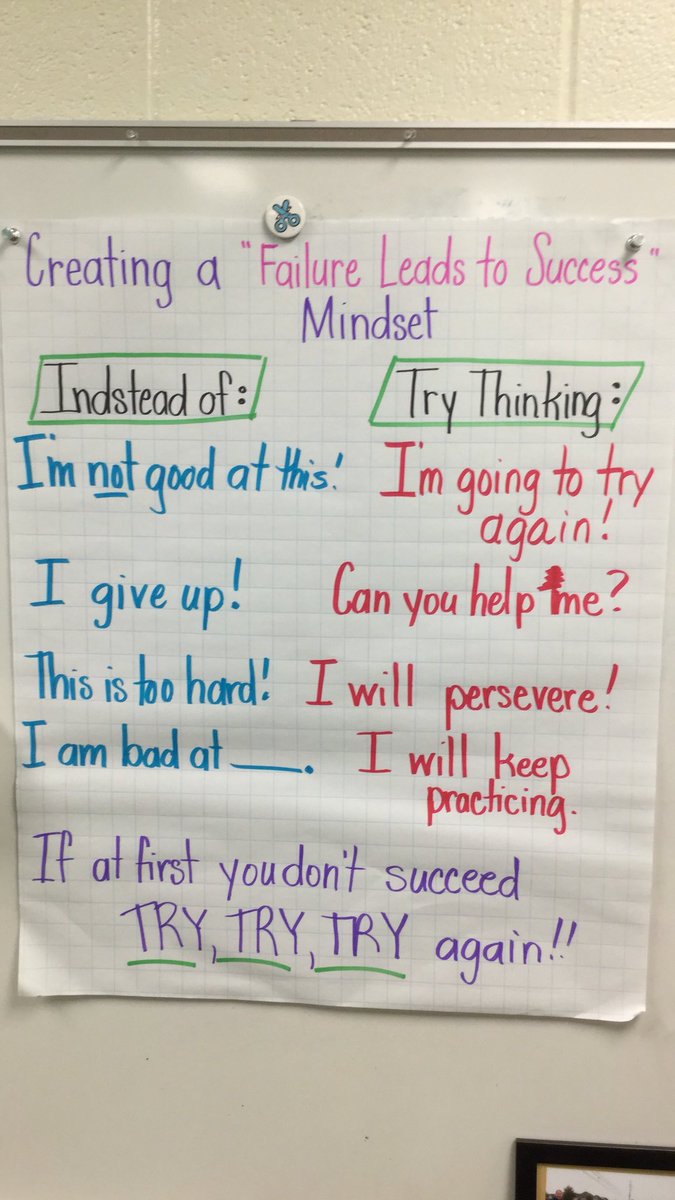 Creating a "Failure Leads to Success"
Mindset
Indstead of:
Try Thinking:
I'm not good at this!
I'm going to try
again!
I give up!
Can you help me?
This is too hard!
I will persevere!
I am bad at ___.
I will keep
practicing.
If at first you don't succeed
TRY, TRY, TRY again!!